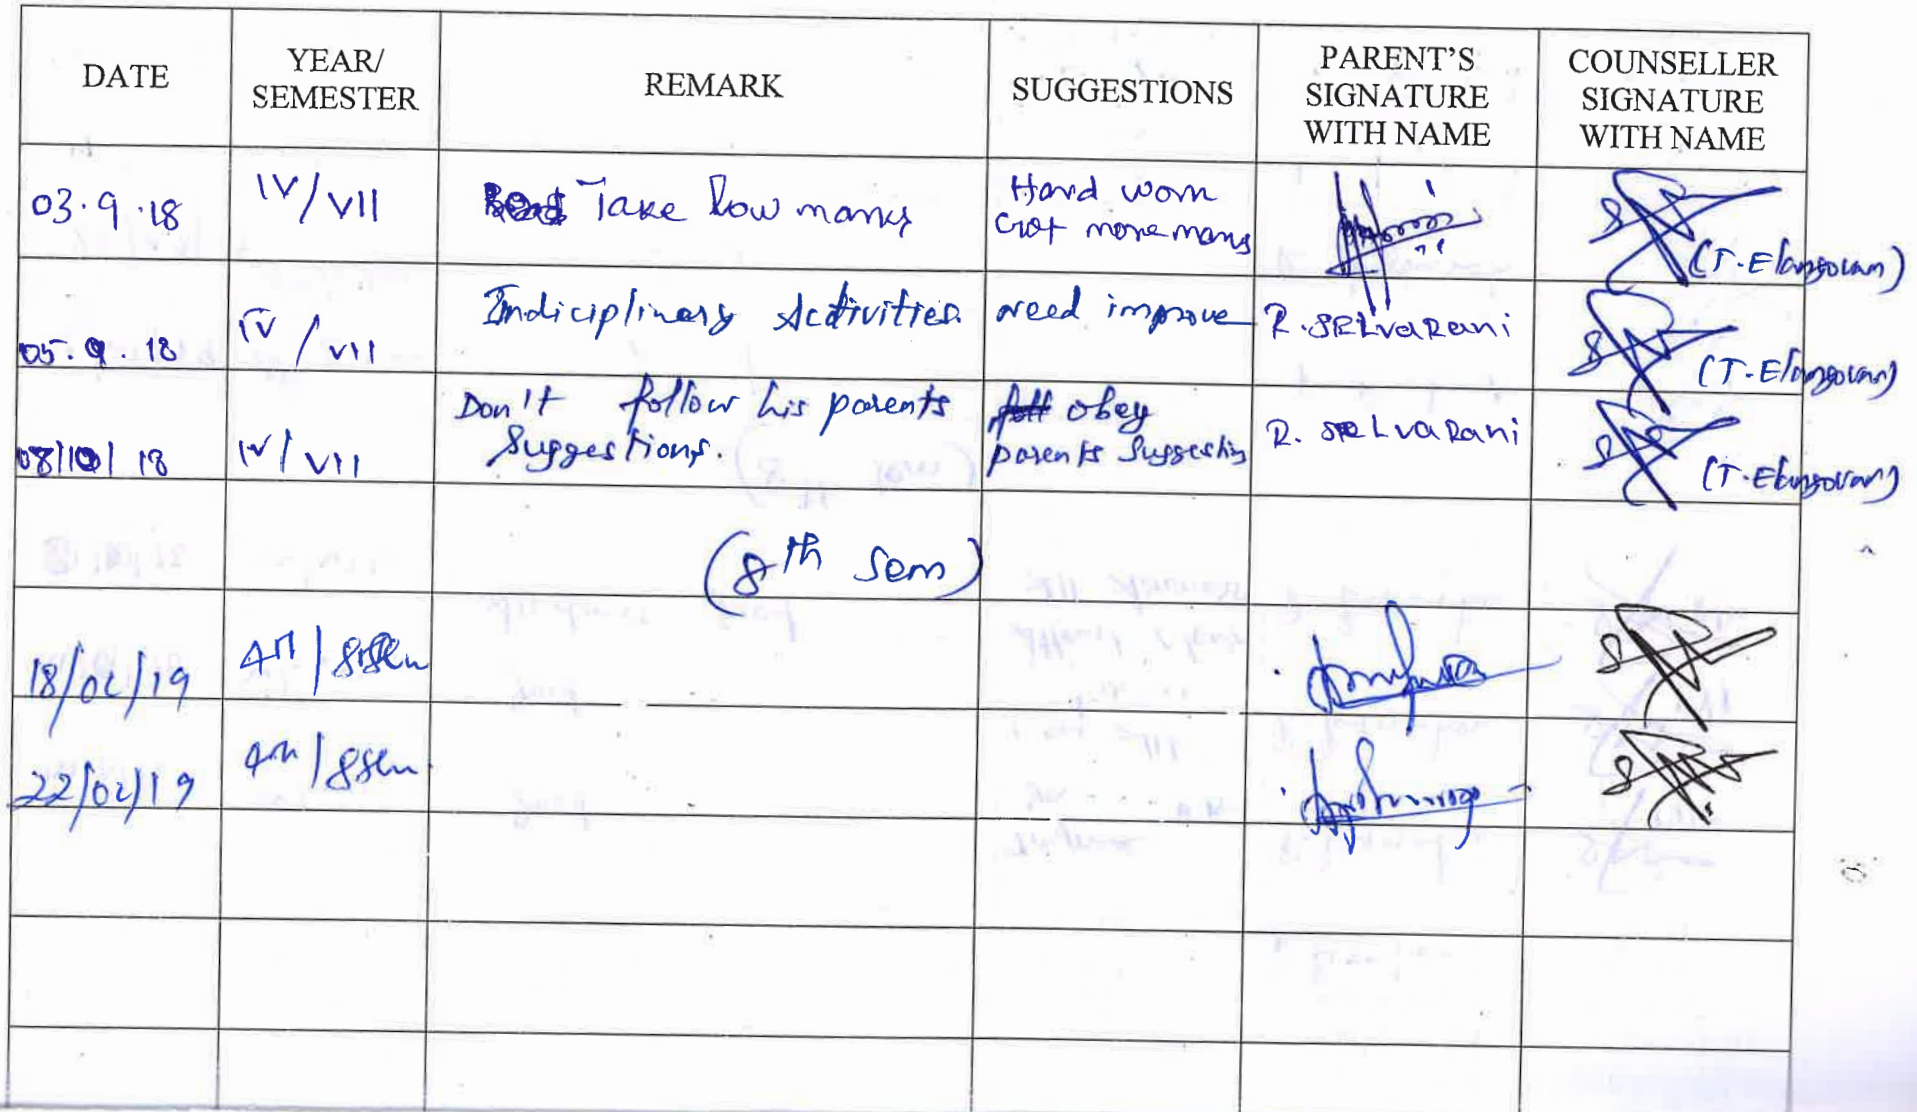 DATE YEAR/ SEMESTER REMARK SUGGESTIONS PARENT'S SIGNATURE WITH NAME COUNSELLER SIGNATURE WITH NAME
03.9.18 IV/VII Take low marks Hard work
Get more marks
(T.Elangovan)
05.9.18 IV/VII Indiciplinary Activities. need improve R. SELVARANI (T.Elangovan)
08/10/18 IV/VII Don't follow his parents obey R. SELVARANI
Suggestions. parents Suggestion (T.Elangovan)
(8th Sem)
18/02/19
22/02/19